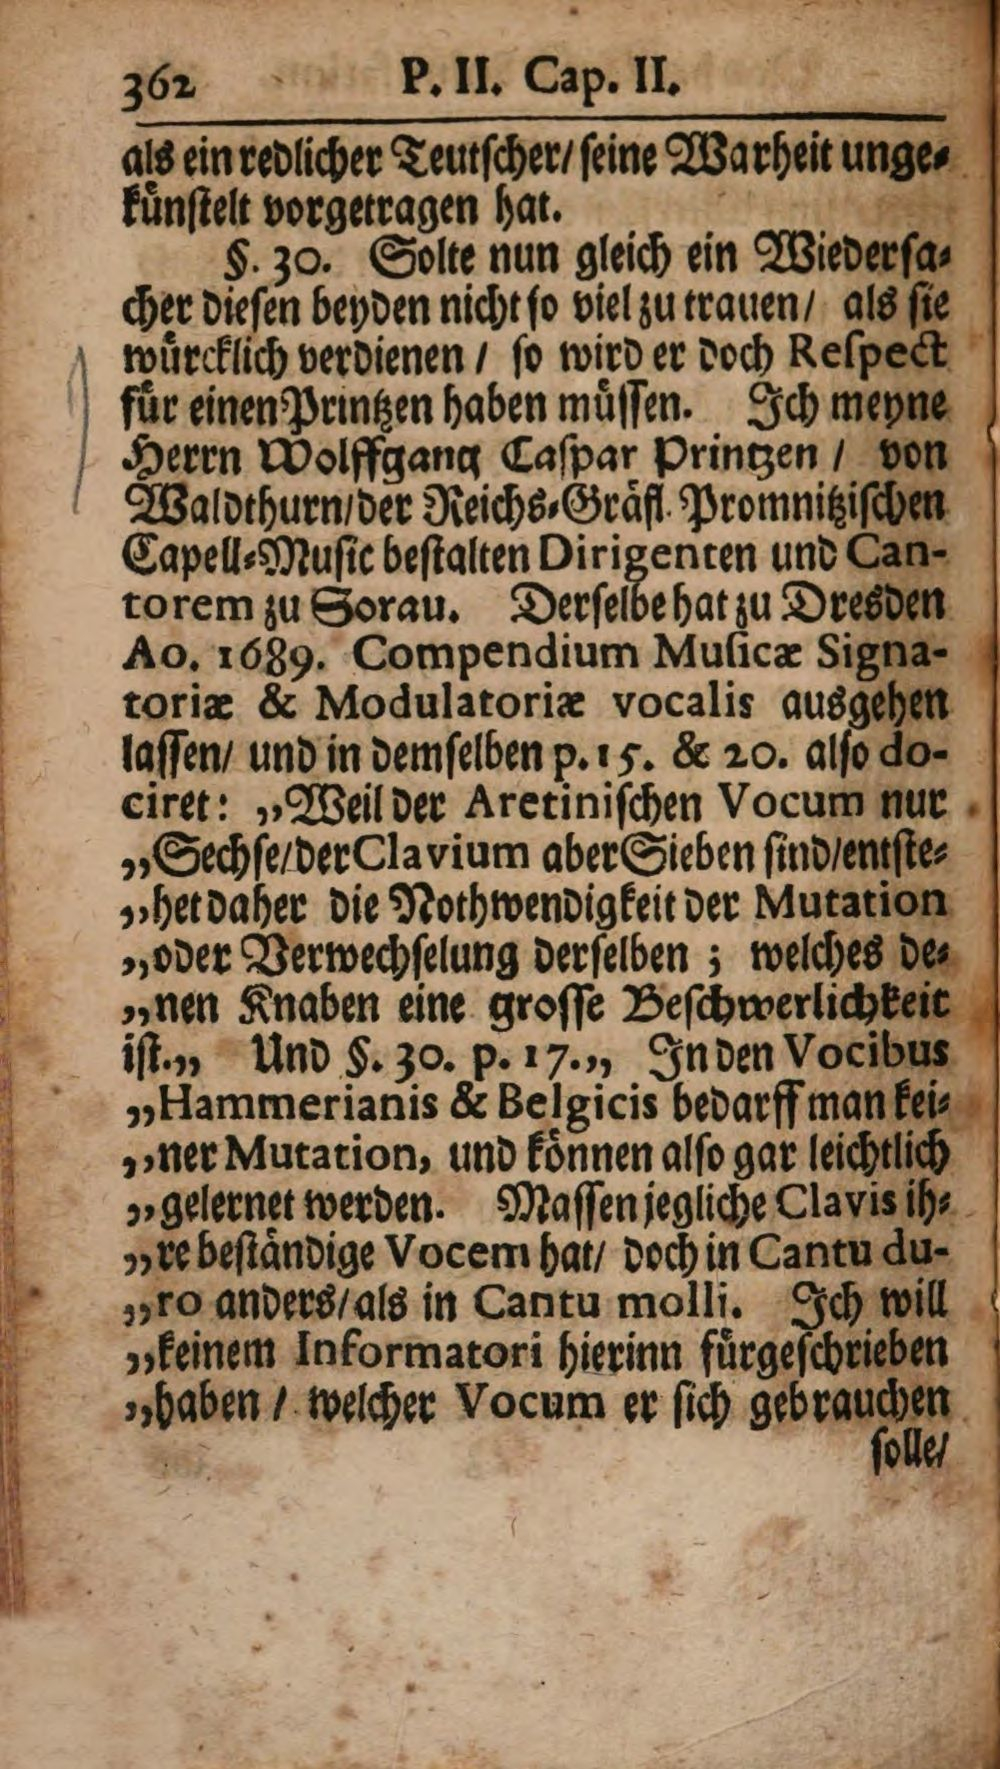 362 P. II. Cap. II.
als ein redlicher Teutscher/ seine Warheit unge-
künstelt vorgetragen hat.
§. 30. Solte nun gleich ein Wiedersa-
cher diesen beyden nicht so viel zu trauen/ als sie
würcklich verdienen / so wird er doch Respect
für einen Printzen haben müssen. Ich meyne
Herrn Wolffgang Caspar Printzen / von
Waldthurn/der Reichs-Gräfl. Promnitzischen
Capell-Music bestalten Dirigenten und Can-
torem zu Sorau. Derselbe hat zu Dresden
Ao. 1689. Compendium Musicæ Signa-
toriæ & Modulatoriæ vocalis ausgehen
lassen/ und in demselben p. 15. & 20. also do-
ciret: „Weil der Aretinischen Vocum nur
„Sechse/der Clavium aber Sieben sind/entste-
„het daher die Nothwendigkeit der Mutation
„oder Verwechselung derselben ; welches de-
„nen Knaben eine grosse Beschwerlichkeit
ist.„ Und §. 30. p. 17.„ In den Vocibus
„Hammerianis & Belgicis bedarff man kei-
„ner Mutation, und können also gar leichtlich
„gelernet werden. Massen jegliche Clavis ih-
„re beständige Vocem hat/ doch in Cantu du-
„ro anders/als in Cantu molli. Ich will
„keinem Informatori hierinn fürgeschrieben
„haben / welcher Vocum er sich gebrauchen
solle/